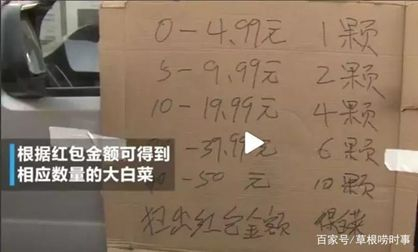 0-4.99元 1颗
5-9.99元 2颗
10-19.99元 4颗
-39.99元 6颗
-50元 10颗
红包金额
根据红包金额可得到
相应数量的大白菜
百家号/草根唠时事